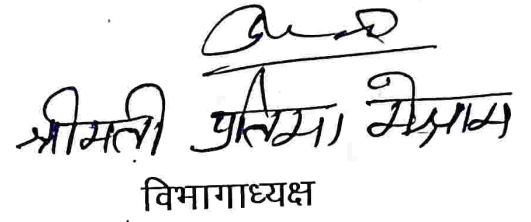 श्रीमती प्रतिमा मेश्राम
विभागाध्यक्ष